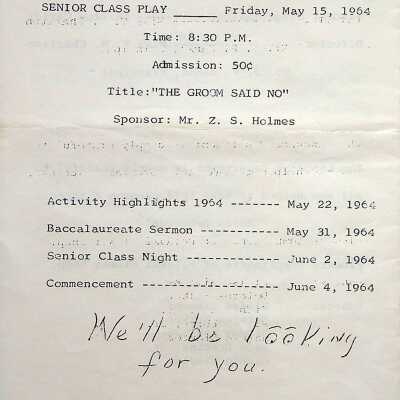 SENIOR CLASS PLAY _____ Friday, May 15, 1964
Time: 8:30 P.M.
Admission: 50¢
Title:"THE GROOM SAID NO"
Sponsor: Mr. Z. S. Holmes
Activity Highlights 1964 ------- May 22, 1964
Baccalaureate Sermon ------------ May 31, 1964
Senior Class Night -------------- June 2, 1964
Commencement -------------------- June 4, 1964
We'll be looking
for you.